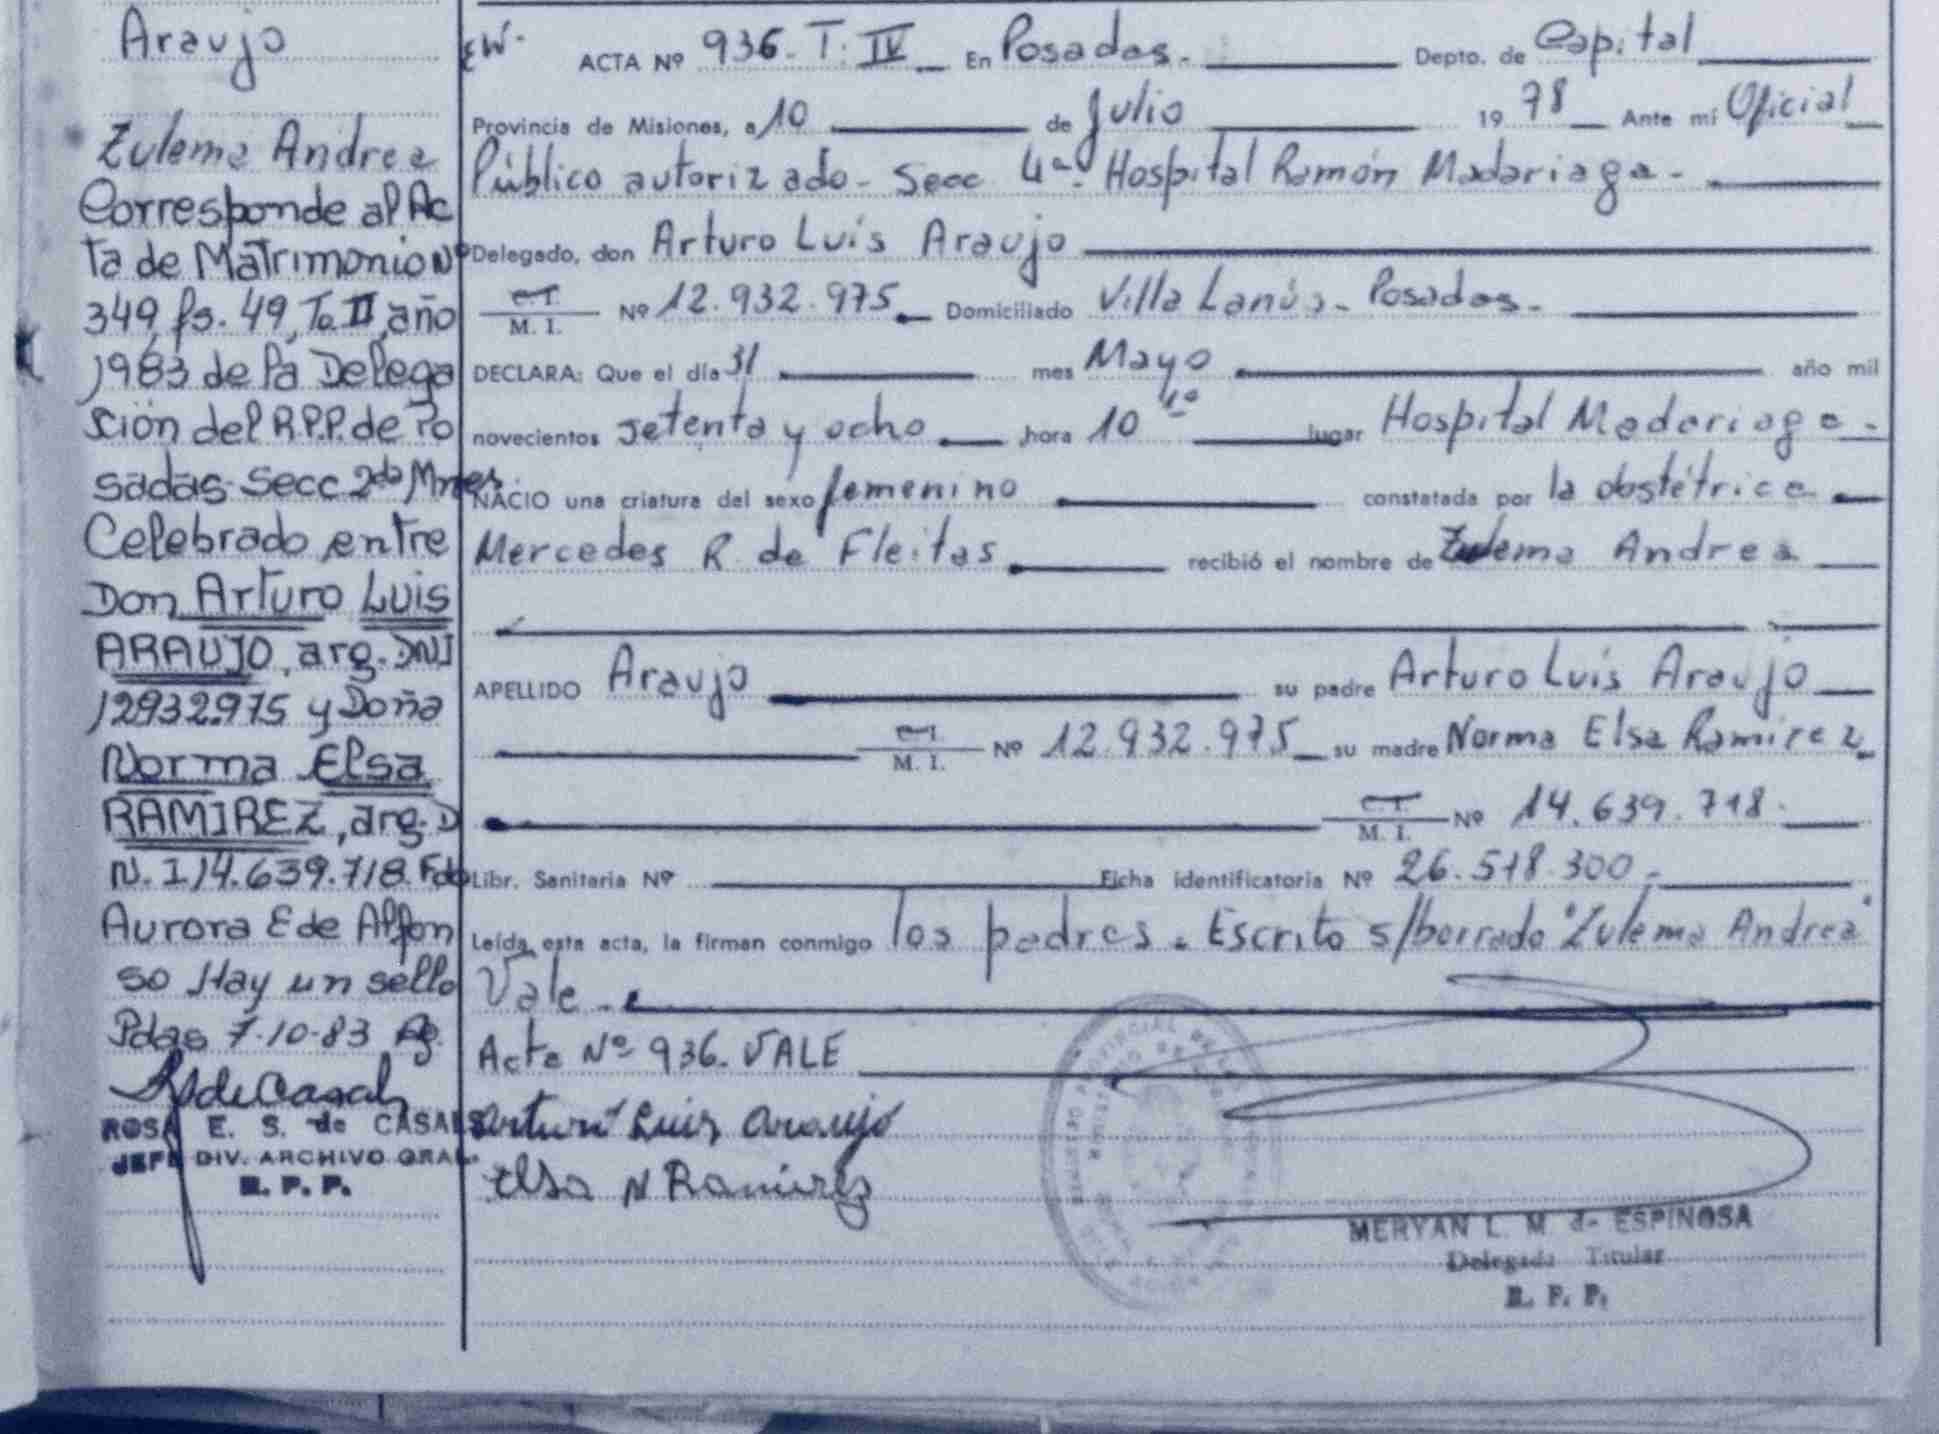 Araujo
Zulema Andrea
Corresponde al Ac
ta de Matrimonio Nº
349, fs. 49, To. II, año
1983 de la Delega
sción del R.P.P. de Po
sadas Secc 2da Mnes
Celebrado entre
Don Arturo Luis
ARAUJO, arg. DNI
12932975 y Doña
Norma Elsa
RAMIREZ, arg. D
N.I 14.639.718. Fdo
Aurora E de Alfon
so Hay un sello
Pdas 7-10-83
ROSA E. S. de CASALS
JEFE DIV. ARCHIVO GRAL.
R. P. P.
ACTA Nº 936 - T. IV En Posadas. Depto. de Capital
Provincia de Misiones, a 10 de Julio 19 78 Ante mí Oficial
Público autorizado - Secc 4a. Hospital Ramón Madariaga -
Delegado, don Arturo Luís Araujo
C.I. M. I. Nº 12.932.975 Domiciliado Villa Lanús - Posadas -
DECLARA: Que el día 31 mes Mayo año mil
novecientos setenta y ocho hora 10 lugar Hospital Madariaga -
NACIO una criatura del sexo femenino constatada por la obstétrica
Mercedes R de Fleitas recibió el nombre de Zulema Andrea
APELLIDO Araujo su padre Arturo Luís Araujo
C.I. M. I. Nº 12.932.975 su madre Norma Elsa Ramirez
C.I. M. I. Nº 14.639.718.
Libr. Sanitaria Nº Ficha identificatoria Nº 26.518.300 -
Leída esta acta, la firman conmigo los padres. Escrito s/borrado "Zulema Andrea"
Vale -
Acta Nº 936. VALE
Arturo Luis Araujo
Elsa N Ramirez
MERYAN L. M. de ESPINOSA
Delegada Titular
R. P. P.